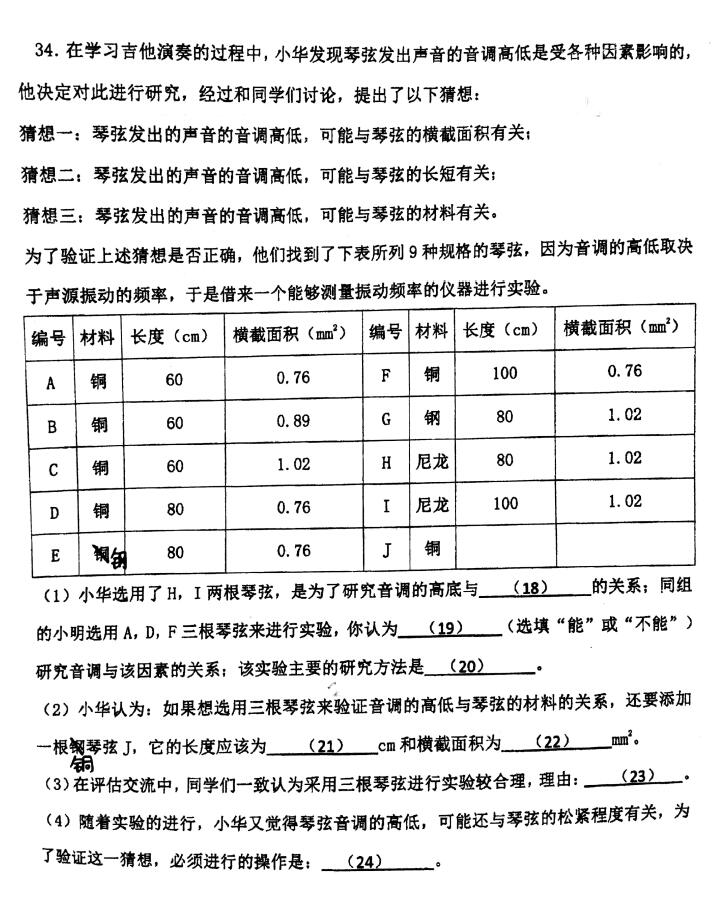 34. 在学习吉他演奏的过程中，小华发现琴弦发出声音的音调高低是受各种因素影响的，
他决定对此进行研究，经过和同学们讨论，提出了以下猜想：
猜想一：琴弦发出的声音的音调高低，可能与琴弦的横截面积有关；
猜想二：琴弦发出的声音的音调高低，可能与琴弦的长短有关；
猜想三：琴弦发出的声音的音调高低，可能与琴弦的材料有关。
为了验证上述猜想是否正确，他们找到了下表所列 9 种规格的琴弦，因为音调的高低取决
于声源振动的频率，于是借来一个能够测量振动频率的仪器进行实验。
编号 材料 长度（cm） 横截面积（mm²） 编号 材料 长度（cm） 横截面积（mm²）
A 铜 60 0.76 F 铜 100 0.76
B 铜 60 0.89 G 钢 80 1.02
C 铜 60 1.02 H 尼龙 80 1.02
D 铜 80 0.76 I 尼龙 100 1.02
E 钢 80 0.76 J 铜
（1）小华选用了 H，I 两根琴弦，是为了研究音调的高底与（18）的关系；同组
的小明选用 A，D，F 三根琴弦来进行实验，你认为（19）（选填“能”或“不能”）
研究音调与该因素的关系；该实验主要的研究方法是（20）。
（2）小华认为：如果想选用三根琴弦来验证音调的高低与琴弦的材料的关系，还要添加
一根琴弦 J，它的长度应该为（21）cm 和横截面积为（22）mm²。
铜
（3）在评估交流中，同学们一致认为采用三根琴弦进行实验较合理，理由：（23）。
（4）随着实验的进行，小华又觉得琴弦音调的高低，可能还与琴弦的松紧程度有关，为
了验证这一猜想，必须进行的操作是：（24）。